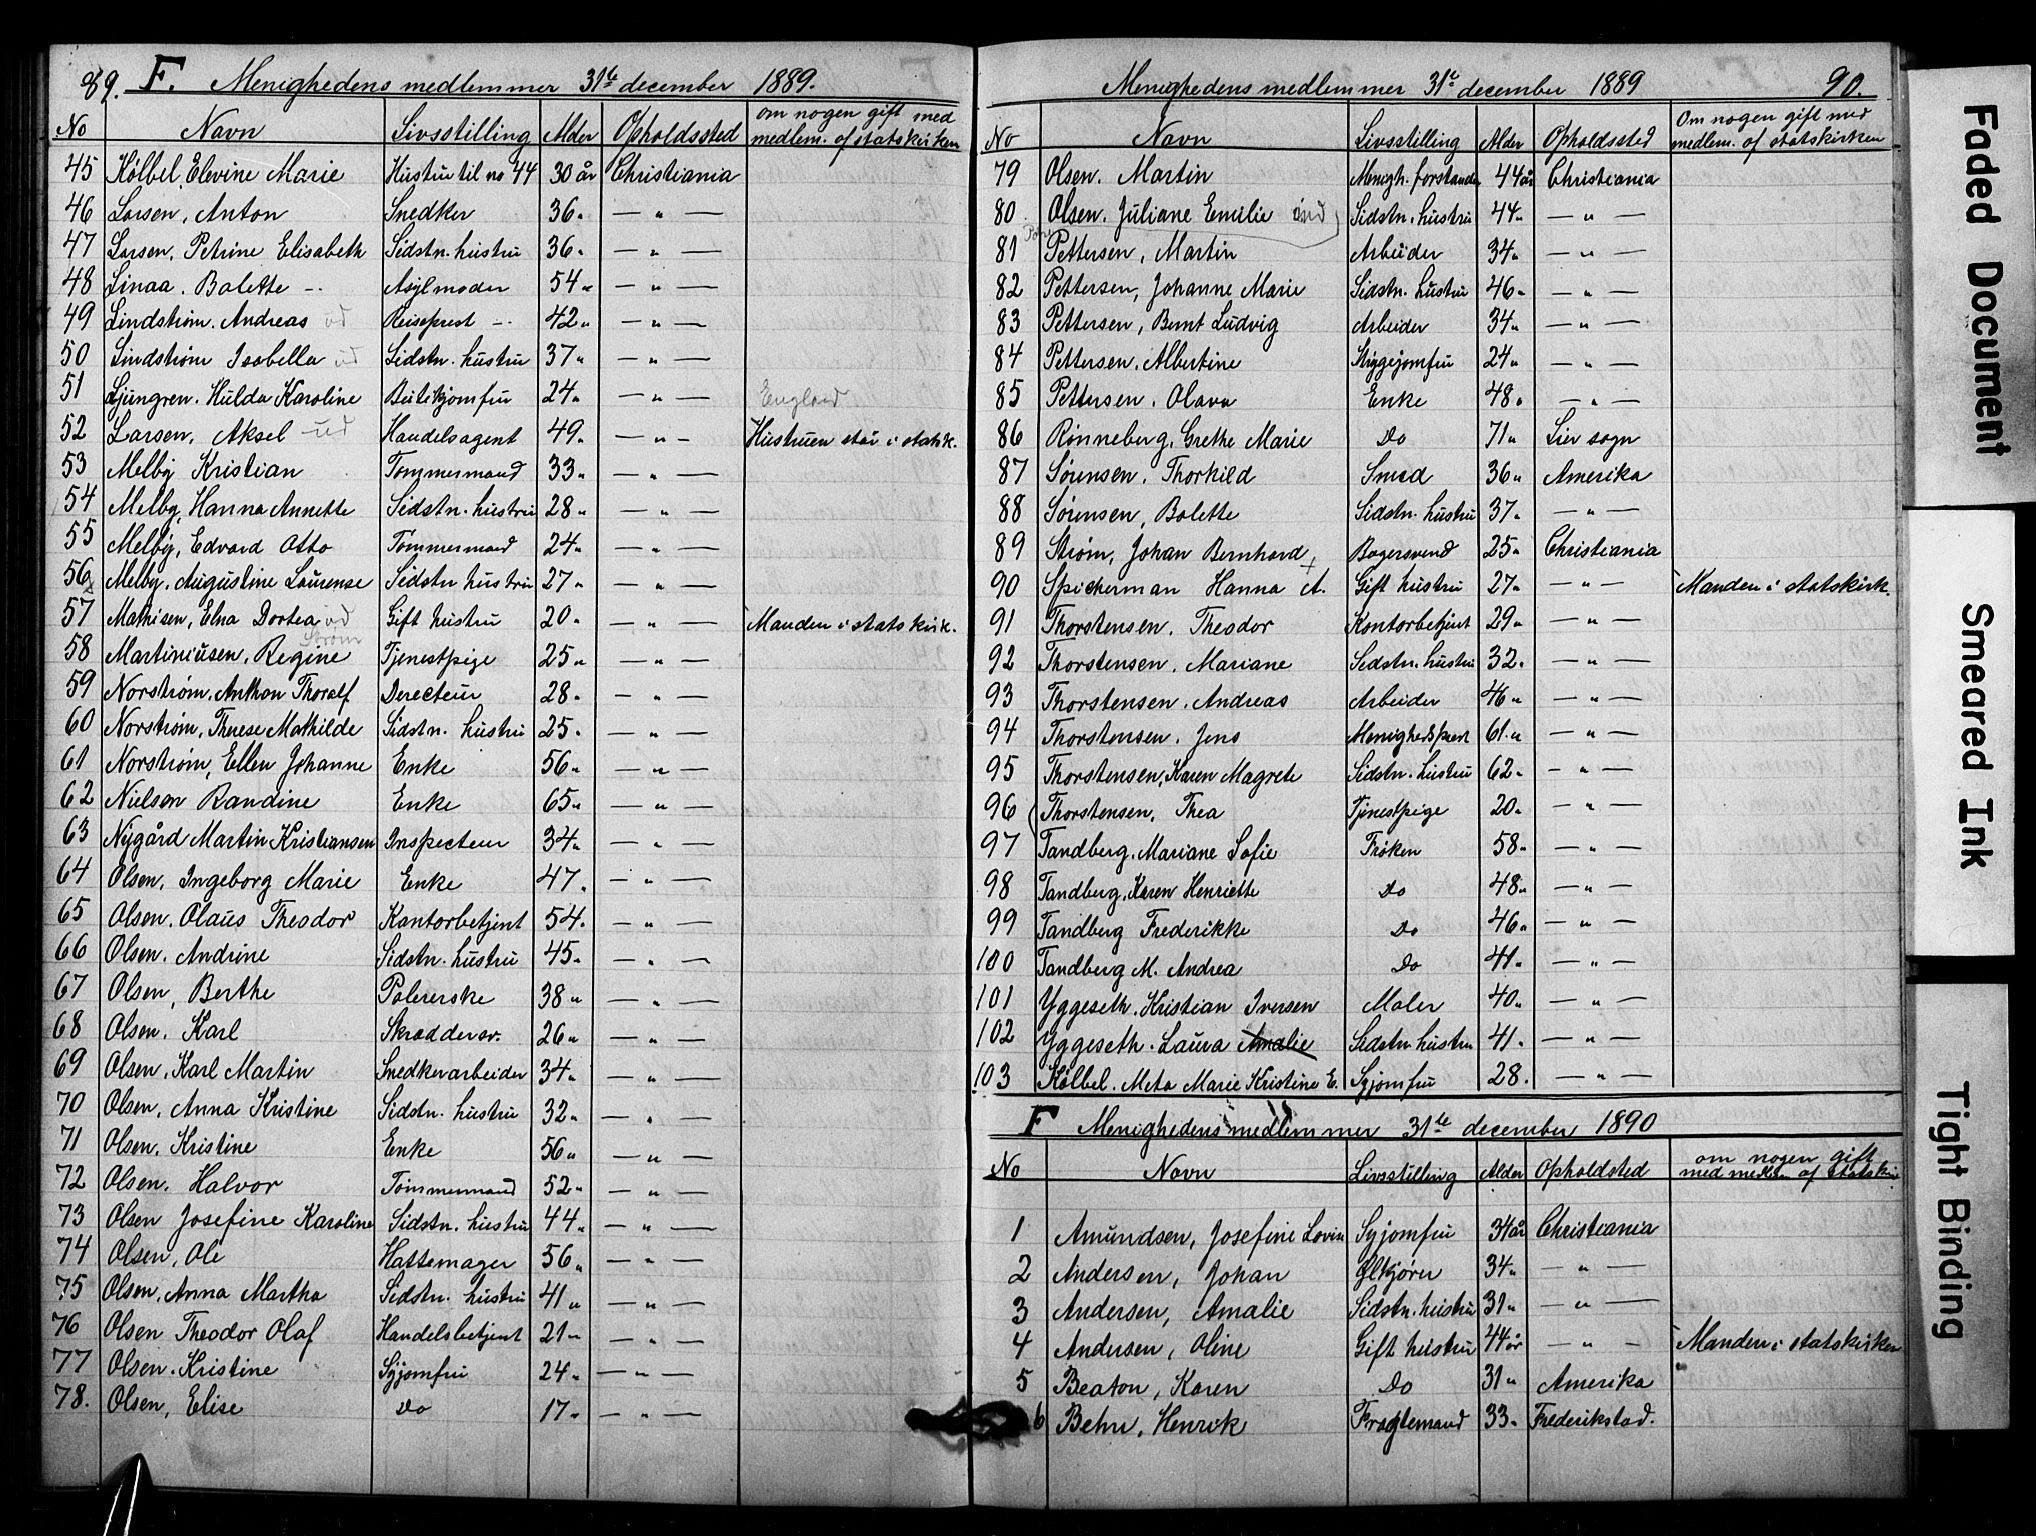 89. F. Menighedens medlemmer 31te december 1889.
No Navn Livsstilling Alder Opholdssted om nogen gift med medlem. af statskirken
45 Kølbel, Elevine Marie Hustru til no 44 30 år Christiania
46 Larsen, Anton Snedker 36 " — " —
47 Larsen, Petrine Elisabeth Sidstn. hustru 36 " — " —
48 Linaa. Bolette Asylmoder 54 " — " —
49 Lindstrøm. Andreas ud Reiseprest 42 " — " —
50 Lindstrøm Isabella ud Sidstn. hustru 37 " — " —
51 Ljungren. Hulda Karoline Butikjomfru 24 " — " — England
52 Larsen, Aksel ud Handelsagent 49 " — " — Hustruen står i statsk.
53 Melby Kristian Tømmermand 33 " — " —
54 Melby, Hanna Annette Sidstn. hustru 28 " — " —
55 Melby, Edvard Otto Tømmermand 24 " — " —
56 Melby. Augustine Laurense Sidstn hustru 27 " — " —
57 Mathisen, Elna Dortea ud Gift hustru 20 " — " — Manden i statskirk.
58 Martiniusen, Regine Strøm Tjenestpige 25 " — " —
59 Norstrøm. Anthon Thoralf Derecteur 28 " — " —
60 Norstrøm, Therese Mathilde Sidstn. hustru 25 " — " —
61 Norstrøm, Ellen Johanne Enke 56 " — " —
62 Nielsen Randine Enke 65 " — " —
63 Nygård Martin Kristiansen Inspecteur 34 " — " —
64 Olsen, Ingeborg Marie Enke 47 " — " —
65 Olsen. Olaus Theodor Kantorbetjent 54 " — " —
66 Olsen. Andrine Sidstn. hustru 45 " — " —
67 Olsen, Berthe Polererske 38 " — " —
68 Olsen. Karl Skræddersv. 26 " — " —
69 Olsen, Karl Martin Snedkerarbeider 34 " — " —
70 Olsen, Anna Kristine Sidstn. hustru 32 " — " —
71 Olsen. Kristine Enke 56 " — " —
72 Olsen. Halvor Tømmermand 52 " — " —
73 Olsen Josefine Karoline Sidstn. hustru 44 " — " —
74 Olsen, Ole Hattemager 56 " — " —
75 Olsen, Anna Martha Sidstn. hustru 41 " — " —
76 Olsen Theodor Olaf Handelsbetjent 21 " — " —
77 Olsen. Kristine Syjomfru 24 " — " —
78. Olsen, Elise Do 17 " — " —
Menighedens medlemmer 31te december 1889 90.
No Navn Livsstilling Alder Opholdssted Om nogen gift med medlem. af statskirken
79 Olsen. Martin Menigh. forstander 44 år Christiania
80 Olsen. Juliane Emilie Sidstn. hustru 44 " — " —
81 Pettersen, Martin Arbeider 34 " — " —
82 Pettersen, Johanne Marie Sidstn. hustru 46 " — " —
83 Pettersen, Bernt Ludvig Arbeider 34 " — " —
84 Pettersen. Albertine Stiggejomfru 24 " — " —
85 Pettersen. Olava Enke 48 " — " —
86 Rønneberg. Grethe Marie Do 71 " Lier sogn
87 Sørensen. Thorkild Smed 36 " Amerika
88 Sørensen, Bolette Sidstn. hustru 37 " — " —
89 Strøm, Johan Bernhard Bagersvend 25 " Christiania
90 Spickerman Hanna A. Gift hustru 27 " — " — Manden i statskirk.
91 Thorstensen. Theodor Kontorbetjent 29 " — " —
92 Thorstensen. Mariane Sidstn. hustru 32 " — " —
93 Thorstensen. Andreas Arbeider 46 " — " —
94 Thorstensen. Jens Menighedsprest 61 " — " —
95 Thorstensen, Karen Magrete Sidstn. hustru 62 " — " —
96 Thorstensen, Thea Tjenestpige 20 " — " —
97 Tandberg. Mariane Sofie Frøken 58 " — " —
98 Tandberg. Karen Henriette Do 48 " — " —
99 Tandberg Frederikke Do 46 " — " —
100 Tandberg M. Andrea Do 41 " — " —
101 Yggeseth. Kristian Iversen Maler 40 " — " —
102 Yggeseth. Laura Amalie Sidstn hustru 41 " — " —
103 Kølbel. Meta Marie Kristine E. Syjomfru 28. — " —
F Menighedens medlemmer 31te december 1890
No Navn Livsstilling Alder Opholdsted om nogen gift med medlem af statskir
1 Amundsen, Josefine Lovin Syjomfru 34 år Christiania
2 Andersen, Johan Ølkjører 34 " — " —
3 Andersen, Amalie Sidstn. hustru 31 " — " —
4 Andersen, Oline Gift hustru 44 år — " — Manden i statskirken
5 Beaton, Karen Do 31 " Amerika "
6 Behn, Henrik Fragtemand 33 " Frederikstad.
Faded Document
Smeared Ink
Tight Binding